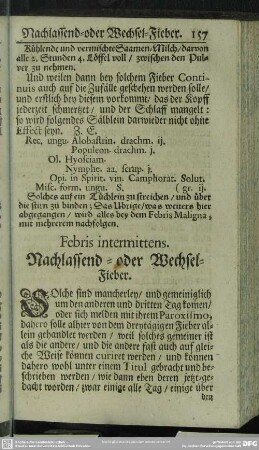 Nachlassend-oder Wechsel-Fieber. 157
Kühlende und vermischte Saamen-Milch/ darvon
alle 2. Stunden 4. Löffel voll / zwischen den Pul-
ver zu nehmen.
Und weilen dann bey solchem Fieber Conti-
nuis auch auf die Zufälle gesehen werden solle/
und erstlich bey diesem vorkommt/ das der Kopff
jederzeit schmertzet / und der Schlaff mangelt:
so wird folgendes Sälblein darwieder nicht ohne
Effect seyn. Z. E.
Rec, ungu. Alobastrin. drachm. ij.
Populeon. drachm. j.
Ol. Hyosciam.
Nymphe. aa. scrup. j.
Opi. in Spirit. vin. Camphorat. Solut.
Misc. form. ungu. S. ( gr. ij.
Solches auf ein Tüchlein zu streichen / und über
die stirn zu binden; Das Ubrige/was weiters hier
abgegangen / wird alles bey dem Febris Maligna;
mit mehrerem nachfolgen.
Febris intermittens.
Nachlassend = oder Wechsel-
Fieber.
SOlche sind mancherley / und gemeiniglich
um den anderen und dritten Tag komen/
oder sich melden mit ihrem Paroxismo,
dahero solle alhier von dem dreytägigen Fieber al-
lein gehandlet werden / weil solches gemeiner ist
als die andere / und die andere fast auch auf glei-
che Weiß können curiret werden / und können
dahero wohl unter einem Titul gebracht und be-
schrieben werden / wie dann eben deren jetzt-ge-
dacht worden / zwar einige alle Tag / einige über
bey